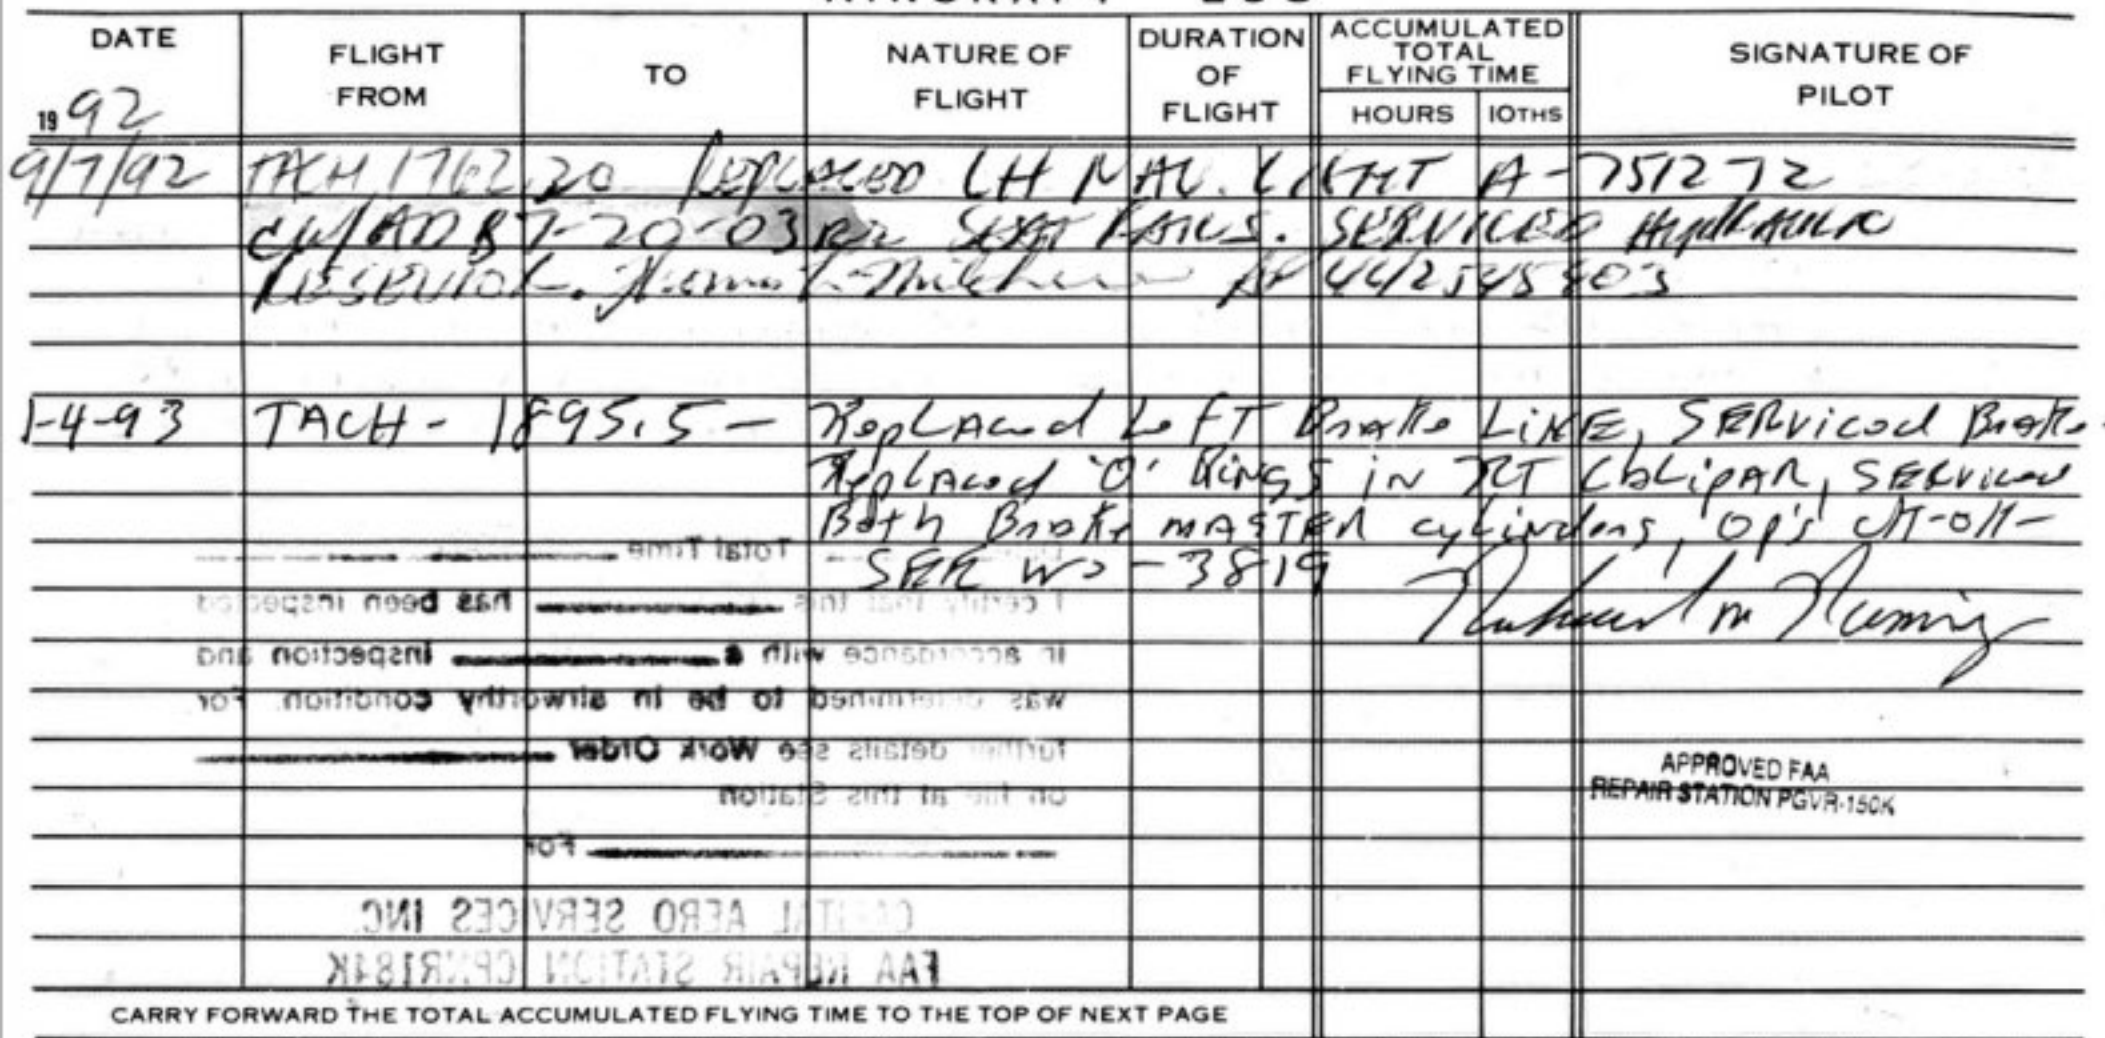 DATE
FLIGHT FROM
TO
NATURE OF FLIGHT
DURATION OF FLIGHT
ACCUMULATED TOTAL FLYING TIME
HOURS
10THS
SIGNATURE OF PILOT
1992
9/7/92 TACH 1762.20 REPLACED LH NAV. LIGHT A-751272
C/W AD 87-20-03 R2 SEAT RAILS. SERVICED HYDRAULIC
RESERVIOR.
1-4-93 TACH - 1895.5 - Replaced Left Brake LiNE, SERViced Brake
Replaced 'O' RINGS iN RT CaLipAR, SERViced
Both Brake mASTER cyLinders, Op's CH-OK-
SER WO-3819
Total Time
I certify that this has been inspected
in accordance with a inspection and
was determined to be in airworthy condition. For
further details see Work Order
on file at this Station
For
CAPITAL AERO SERVICES INC.
FAA REPAIR STATION
APPROVED FAA
REPAIR STATION PGVR-150K
CARRY FORWARD THE TOTAL ACCUMULATED FLYING TIME TO THE TOP OF NEXT PAGE